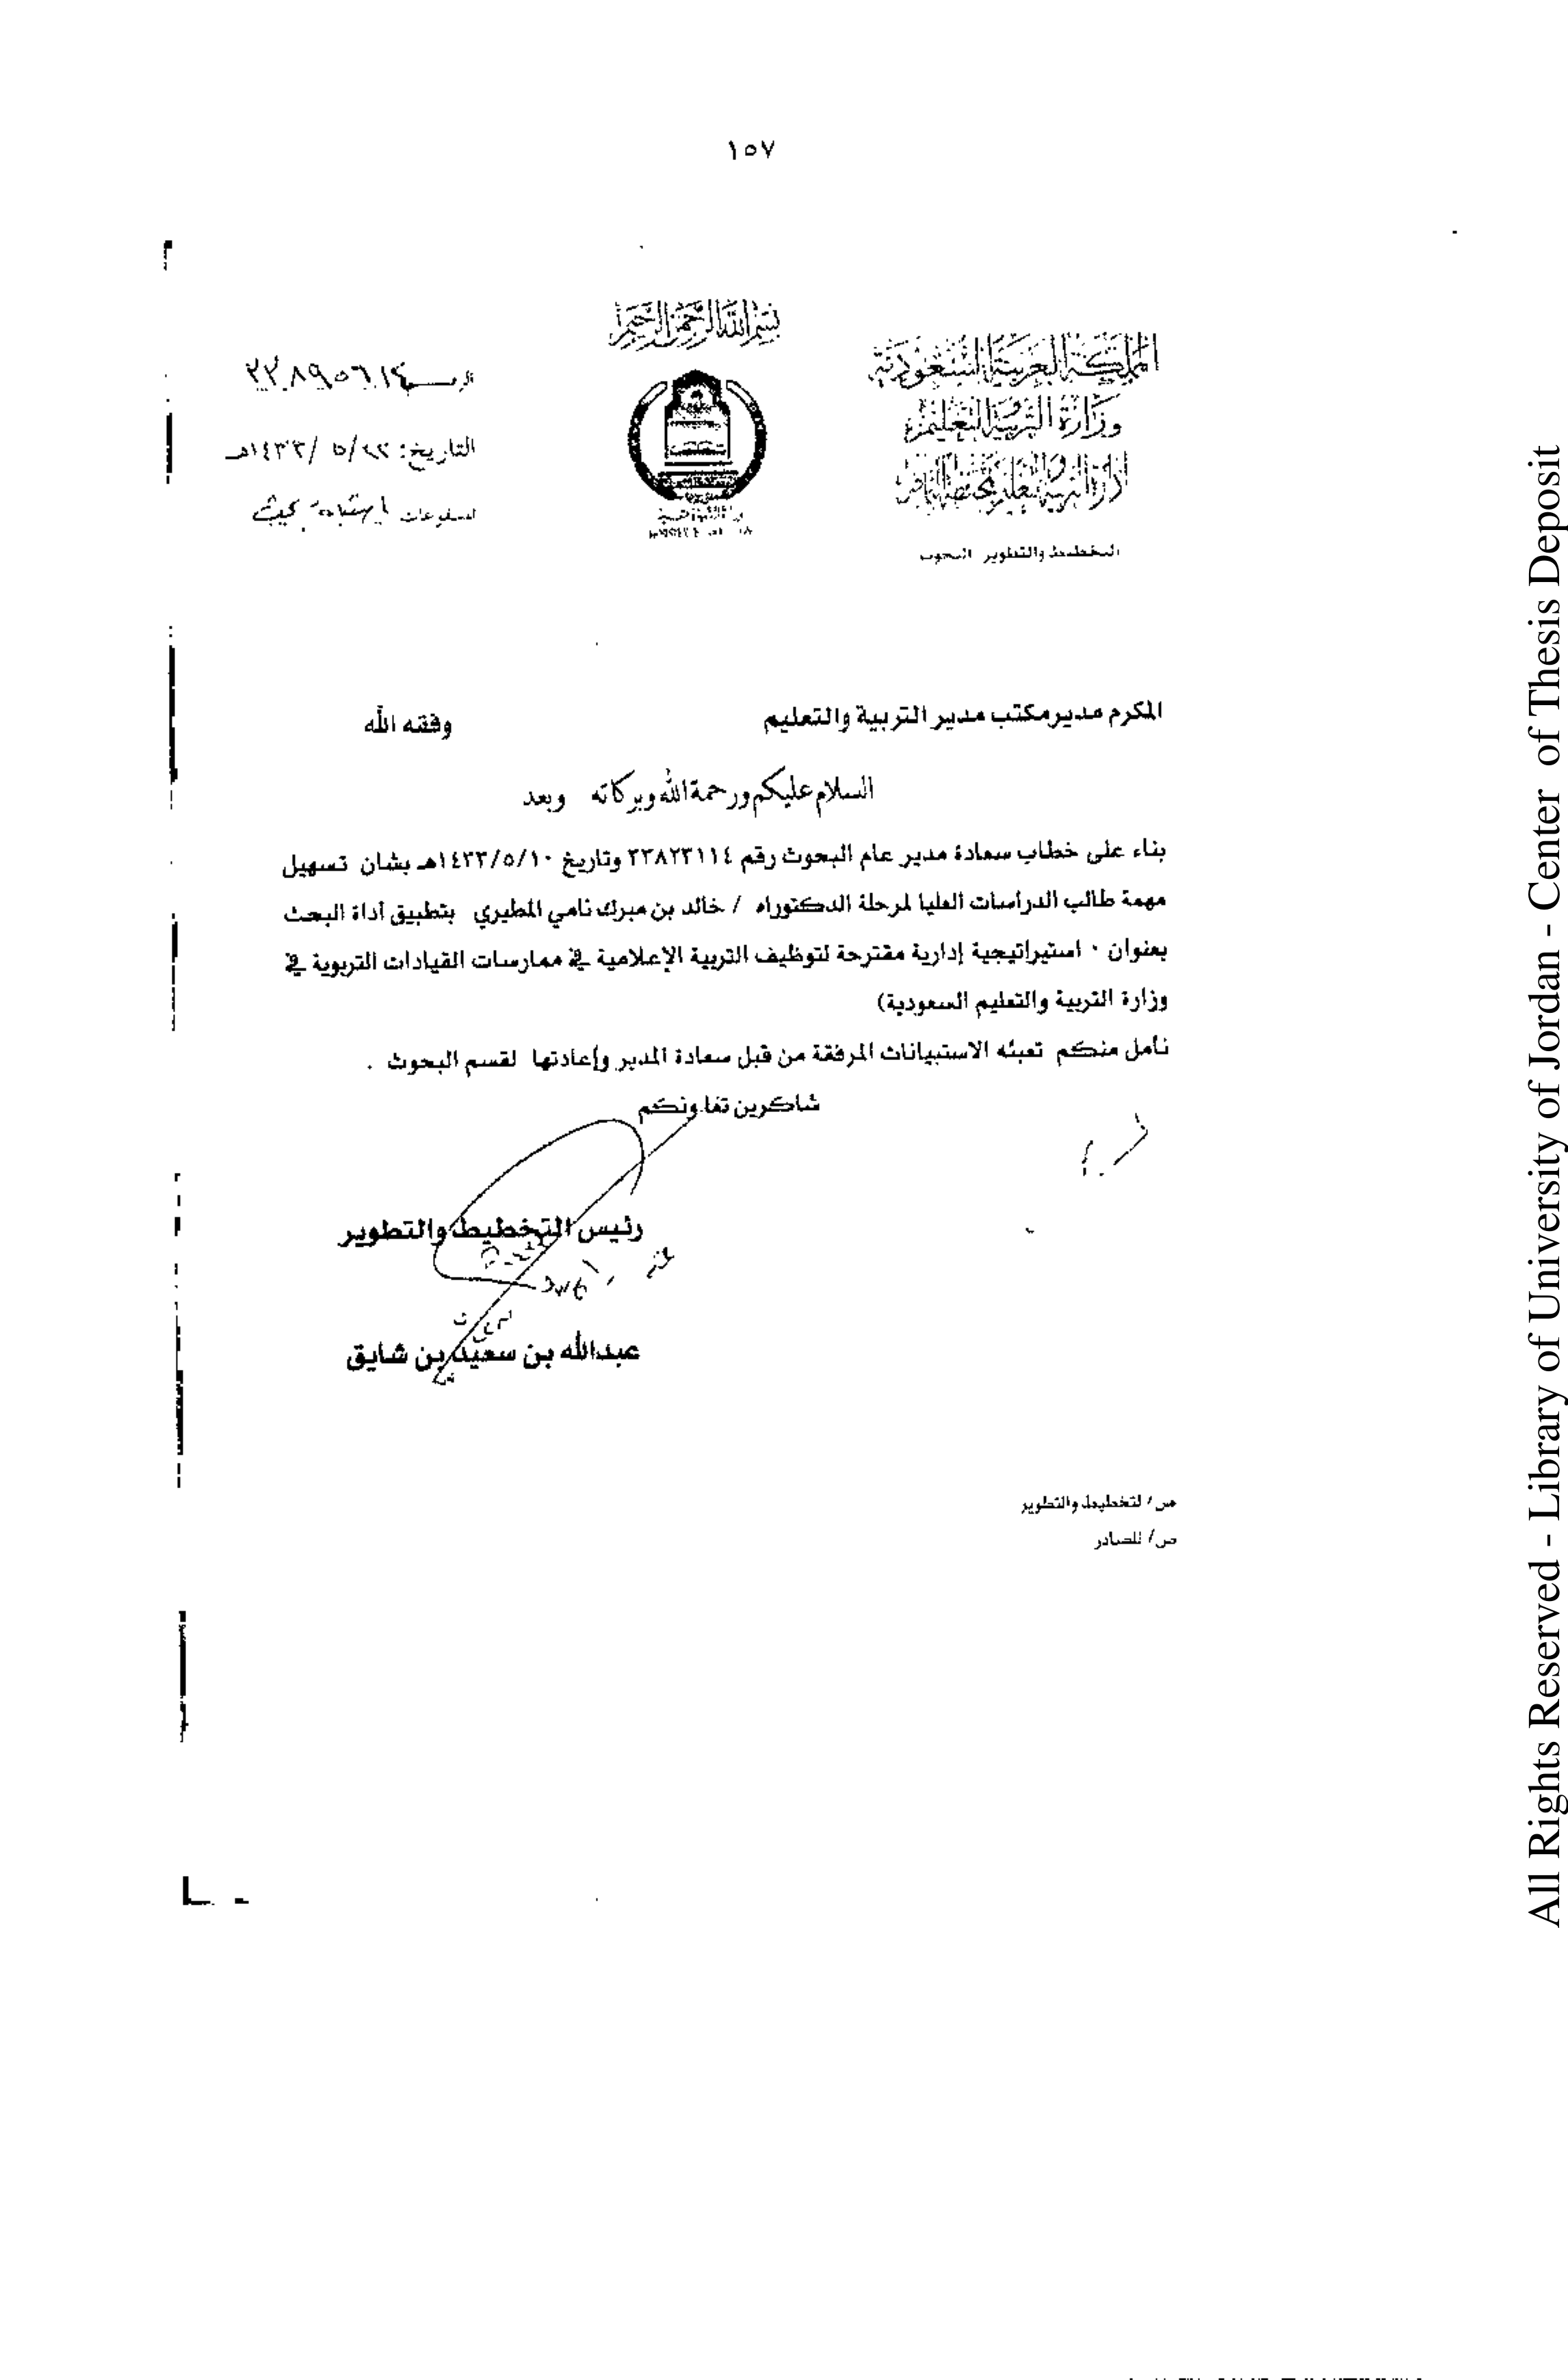 ١٥٧
بسم الله الرحمن الرحيم
المملكة العربية السعودية
وزارة التربية والتعليم
التخطيط والتطوير البحوث
٣٣٨٩٥٦١٤
التاريخ: ٢٢/ ٥ /١٤٣٣هـ
المكرم مدير مكتب مدير التربية والتعليم وفقه الله
السلام عليكم ورحمة الله وبركاته وبعد
بناء على خطاب سعادة مدير عام البحوث رقم ٣٣٨٢٣١١٤ وتاريخ ١٤٣٣/٥/١٠هـ بشان تسهيل
مهمة طالب الدراسات العليا لمرحلة الدكتوراه / خالد بن مبرك نامي المطيري بتطبيق اداة البحث
بعنوان ٠ استيراتيجية إدارية مقترحة لتوظيف التربية الإعلامية في ممارسات القيادات التربوية في
وزارة التربية والتعليم السعودية)
نامل منكم تعبئه الاستبيانات المرفقة من قبل سعادة المدير وإعادتها لقسم البحوث .
شاكرين تعاونكم
رئيس التخطيط والتطوير
عبدالله بن سعيد بن شايق
ص / لتخطيط والتطوير
ص/ للصادر
All Rights Reserved - Library of University of Jordan - Center of Thesis Deposit